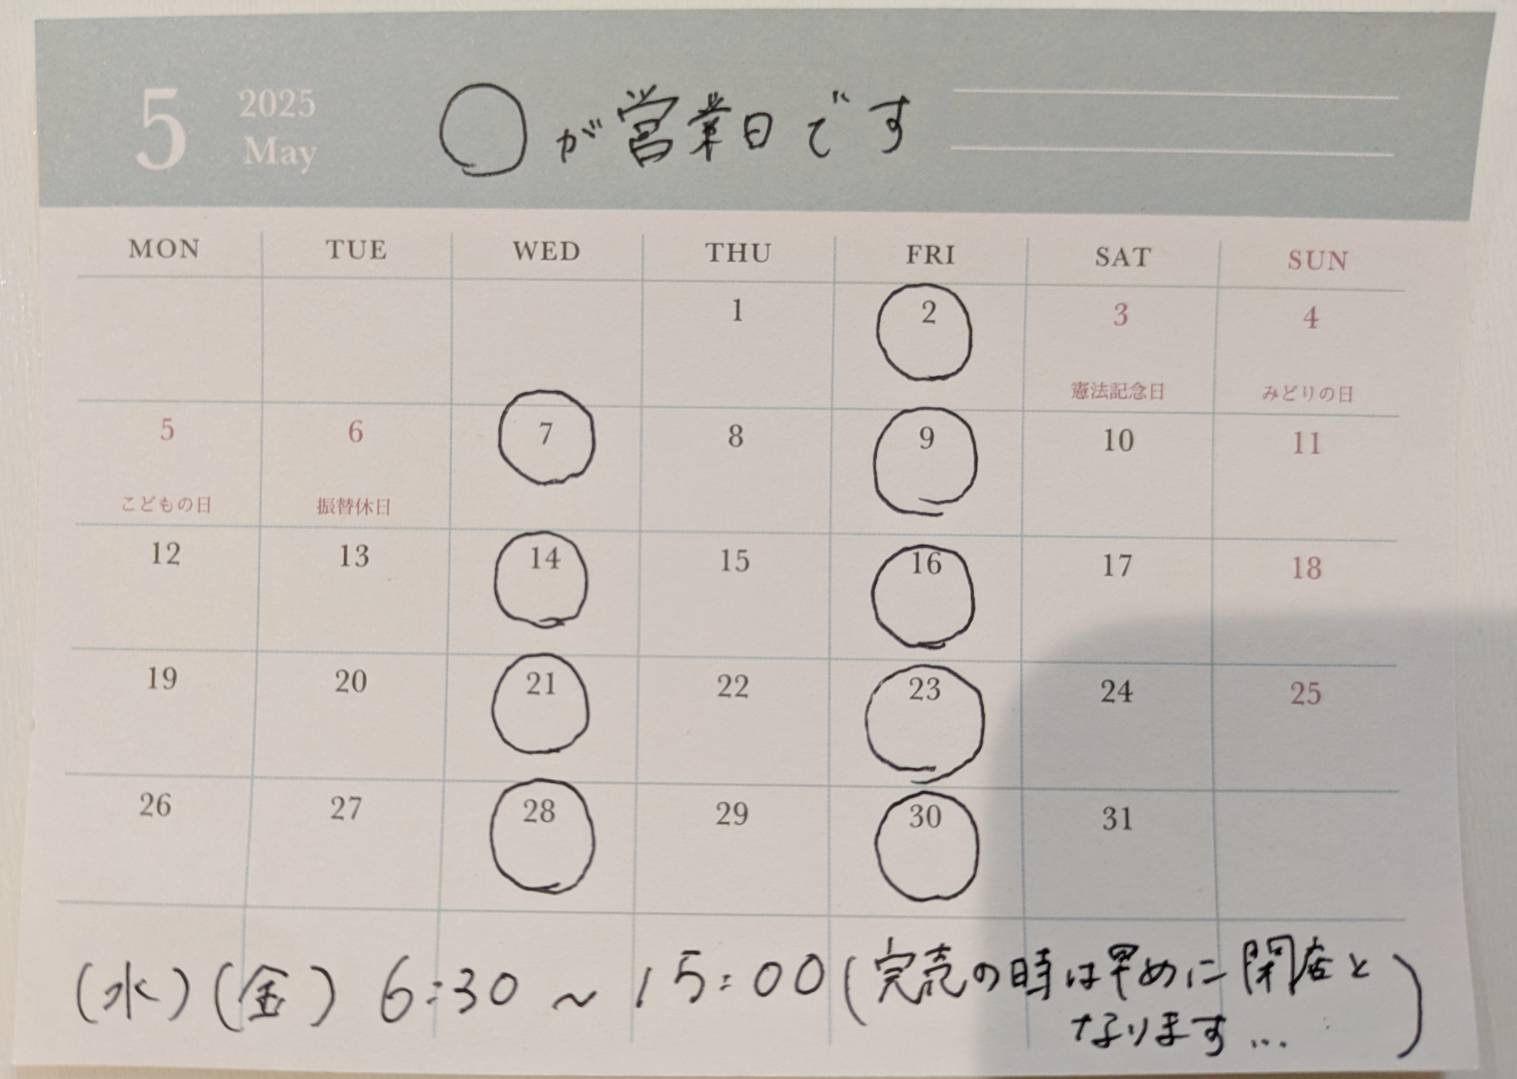 5
2025
May
◯が営業日です
MON TUE WED THU FRI SAT SUN
1 2 3 4
憲法記念日 みどりの日
5 6 7 8 9 10 11
こどもの日 振替休日
12 13 14 15 16 17 18
19 20 21 22 23 24 25
26 27 28 29 30 31
(水)(金) 6:30 ~ 15:00(完売の時は早めに閉店と
なります…)